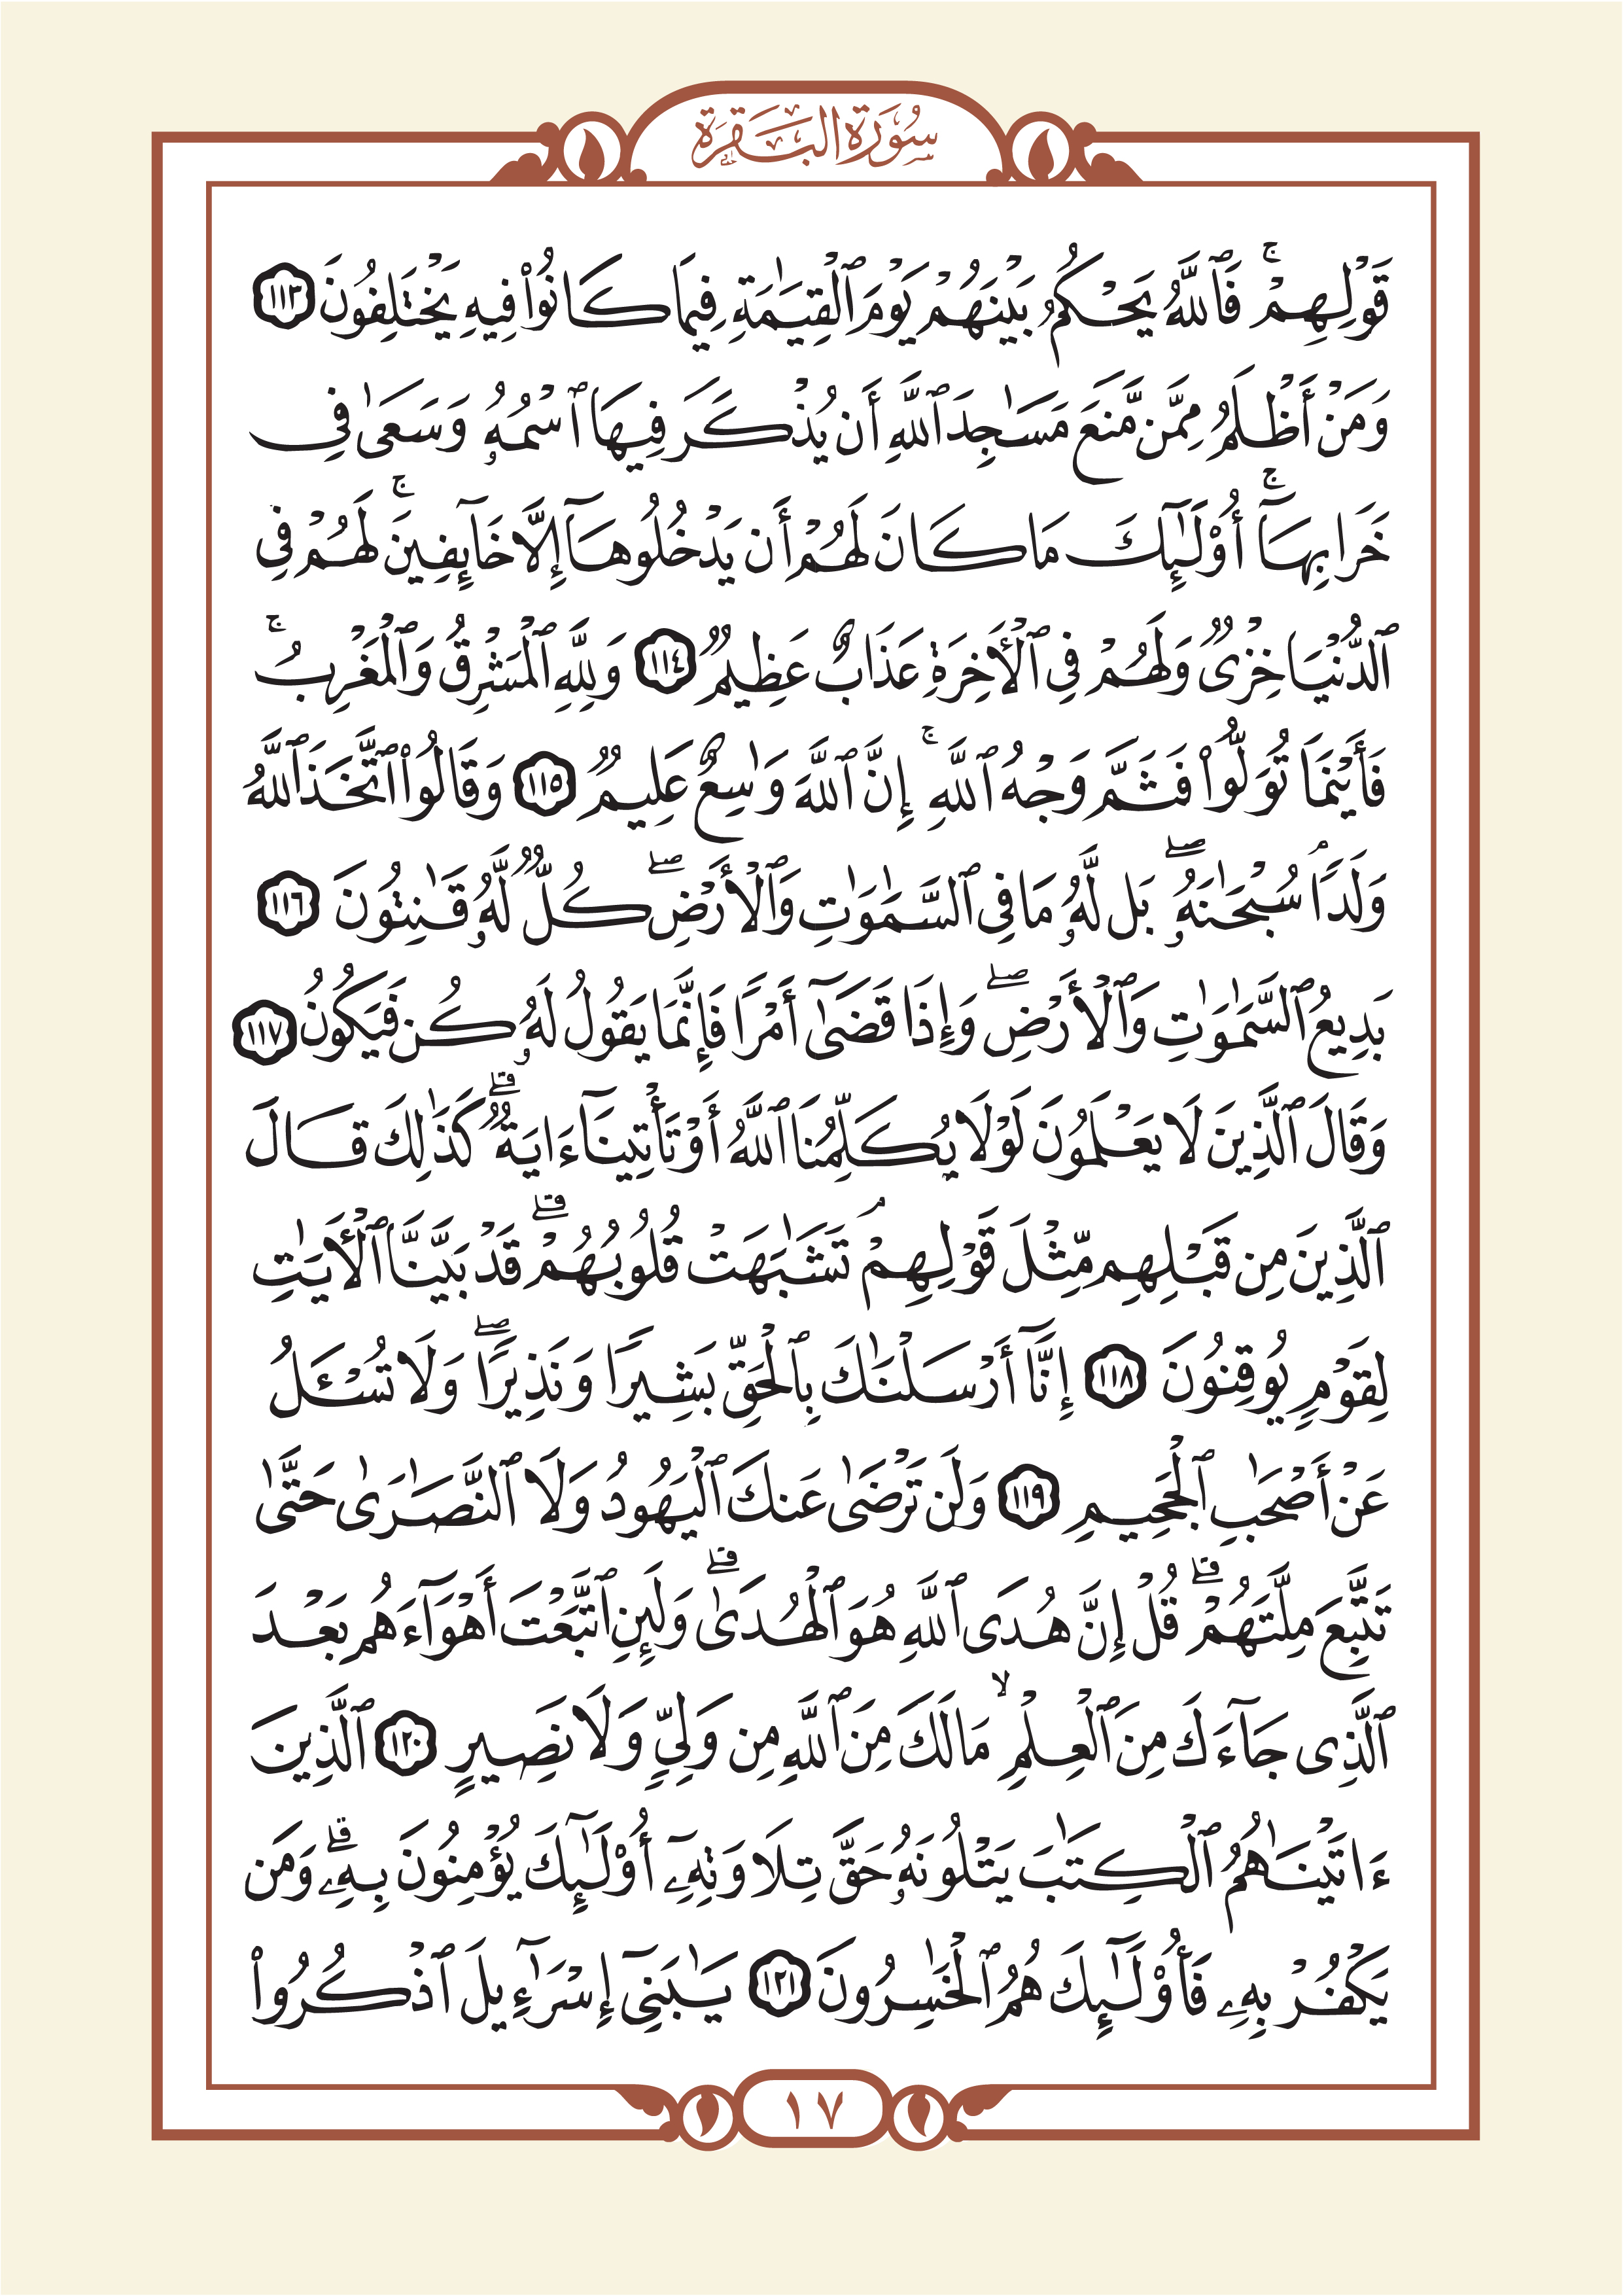 سُورَةُ الْبَقَرَةِ
قَوْلِهِمْۚ فَٱللَّهُ يَحْكُمُ بَيْنَهُمْ يَوْمَ ٱلْقِيَٰمَةِ فِيمَا كَانُوا۟ فِيهِ يَخْتَلِفُونَ ١١٣
وَمَنْ أَظْلَمُ مِمَّن مَّنَعَ مَسَٰجِدَ ٱللَّهِ أَن يُذْكَرَ فِيهَا ٱسْمُهُۥ وَسَعَىٰ فِى
خَرَابِهَآۚ أُو۟لَٰٓئِكَ مَا كَانَ لَهُمْ أَن يَدْخُلُوهَآ إِلَّا خَآئِفِينَۚ لَهُمْ فِى
ٱلدُّنْيَا خِزْىٌ وَلَهُمْ فِى ٱلْأَخِرَةِ عَذَابٌ عَظِيمٌ ١١٤ وَلِلَّهِ ٱلْمَشْرِقُ وَٱلْمَغْرِبُۚ
فَأَيْنَمَا تُوَلُّوا۟ فَثَمَّ وَجْهُ ٱللَّهِۚ إِنَّ ٱللَّهَ وَٰسِعٌ عَلِيمٌ ١١٥ وَقَالُوا۟ ٱتَّخَذَ ٱللَّهُ
وَلَدًاۢ سُبْحَٰنَهُۥۖ بَل لَّهُۥ مَا فِى ٱلسَّمَٰوَٰتِ وَٱلْأَرْضِۖ كُلٌّ لَّهُۥ قَٰنِتُونَ ١١٦
بَدِيعُ ٱلسَّمَٰوَٰتِ وَٱلْأَرْضِۖ وَإِذَا قَضَىٰٓ أَمْرًا فَإِنَّمَا يَقُولُ لَهُۥ كُن فَيَكُونُ ١١٧
وَقَالَ ٱلَّذِينَ لَا يَعْلَمُونَ لَوْلَا يُكَلِّمُنَا ٱللَّهُ أَوْ تَأْتِينَآ ءَايَةٌۗ كَذَٰلِكَ قَالَ
ٱلَّذِينَ مِن قَبْلِهِم مِّثْلَ قَوْلِهِمْۘ تَشَٰبَهَتْ قُلُوبُهُمْۗ قَدْ بَيَّنَّا ٱلْأَيَٰتِ
لِقَوْمٍ يُوقِنُونَ ١١٨ إِنَّآ أَرْسَلْنَٰكَ بِٱلْحَقِّ بَشِيرًا وَنَذِيرًاۖ وَلَا تُسْـَٔلُ
عَنْ أَصْحَٰبِ ٱلْجَحِيمِ ١١٩ وَلَن تَرْضَىٰ عَنكَ ٱلْيَهُودُ وَلَا ٱلنَّصَٰرَىٰ حَتَّىٰ
تَتَّبِعَ مِلَّتَهُمْۗ قُلْ إِنَّ هُدَى ٱللَّهِ هُوَ ٱلْهُدَىٰۗ وَلَئِنِ ٱتَّبَعْتَ أَهْوَآءَهُم بَعْدَ
ٱلَّذِى جَآءَكَ مِنَ ٱلْعِلْمِۙ مَا لَكَ مِنَ ٱللَّهِ مِن وَلِىٍّ وَلَا نَصِيرٍ ١٢٠ ٱلَّذِينَ
ءَاتَيْنَٰهُمُ ٱلْكِتَٰبَ يَتْلُونَهُۥ حَقَّ تِلَاوَتِهِۦٓ أُو۟لَٰٓئِكَ يُؤْمِنُونَ بِهِۦۗ وَمَن
يَكْفُرْ بِهِۦ فَأُو۟لَٰٓئِكَ هُمُ ٱلْخَٰسِرُونَ ١٢١ يَٰبَنِىٓ إِسْرَٰٓءِيلَ ٱذْكُرُوا۟
١٧